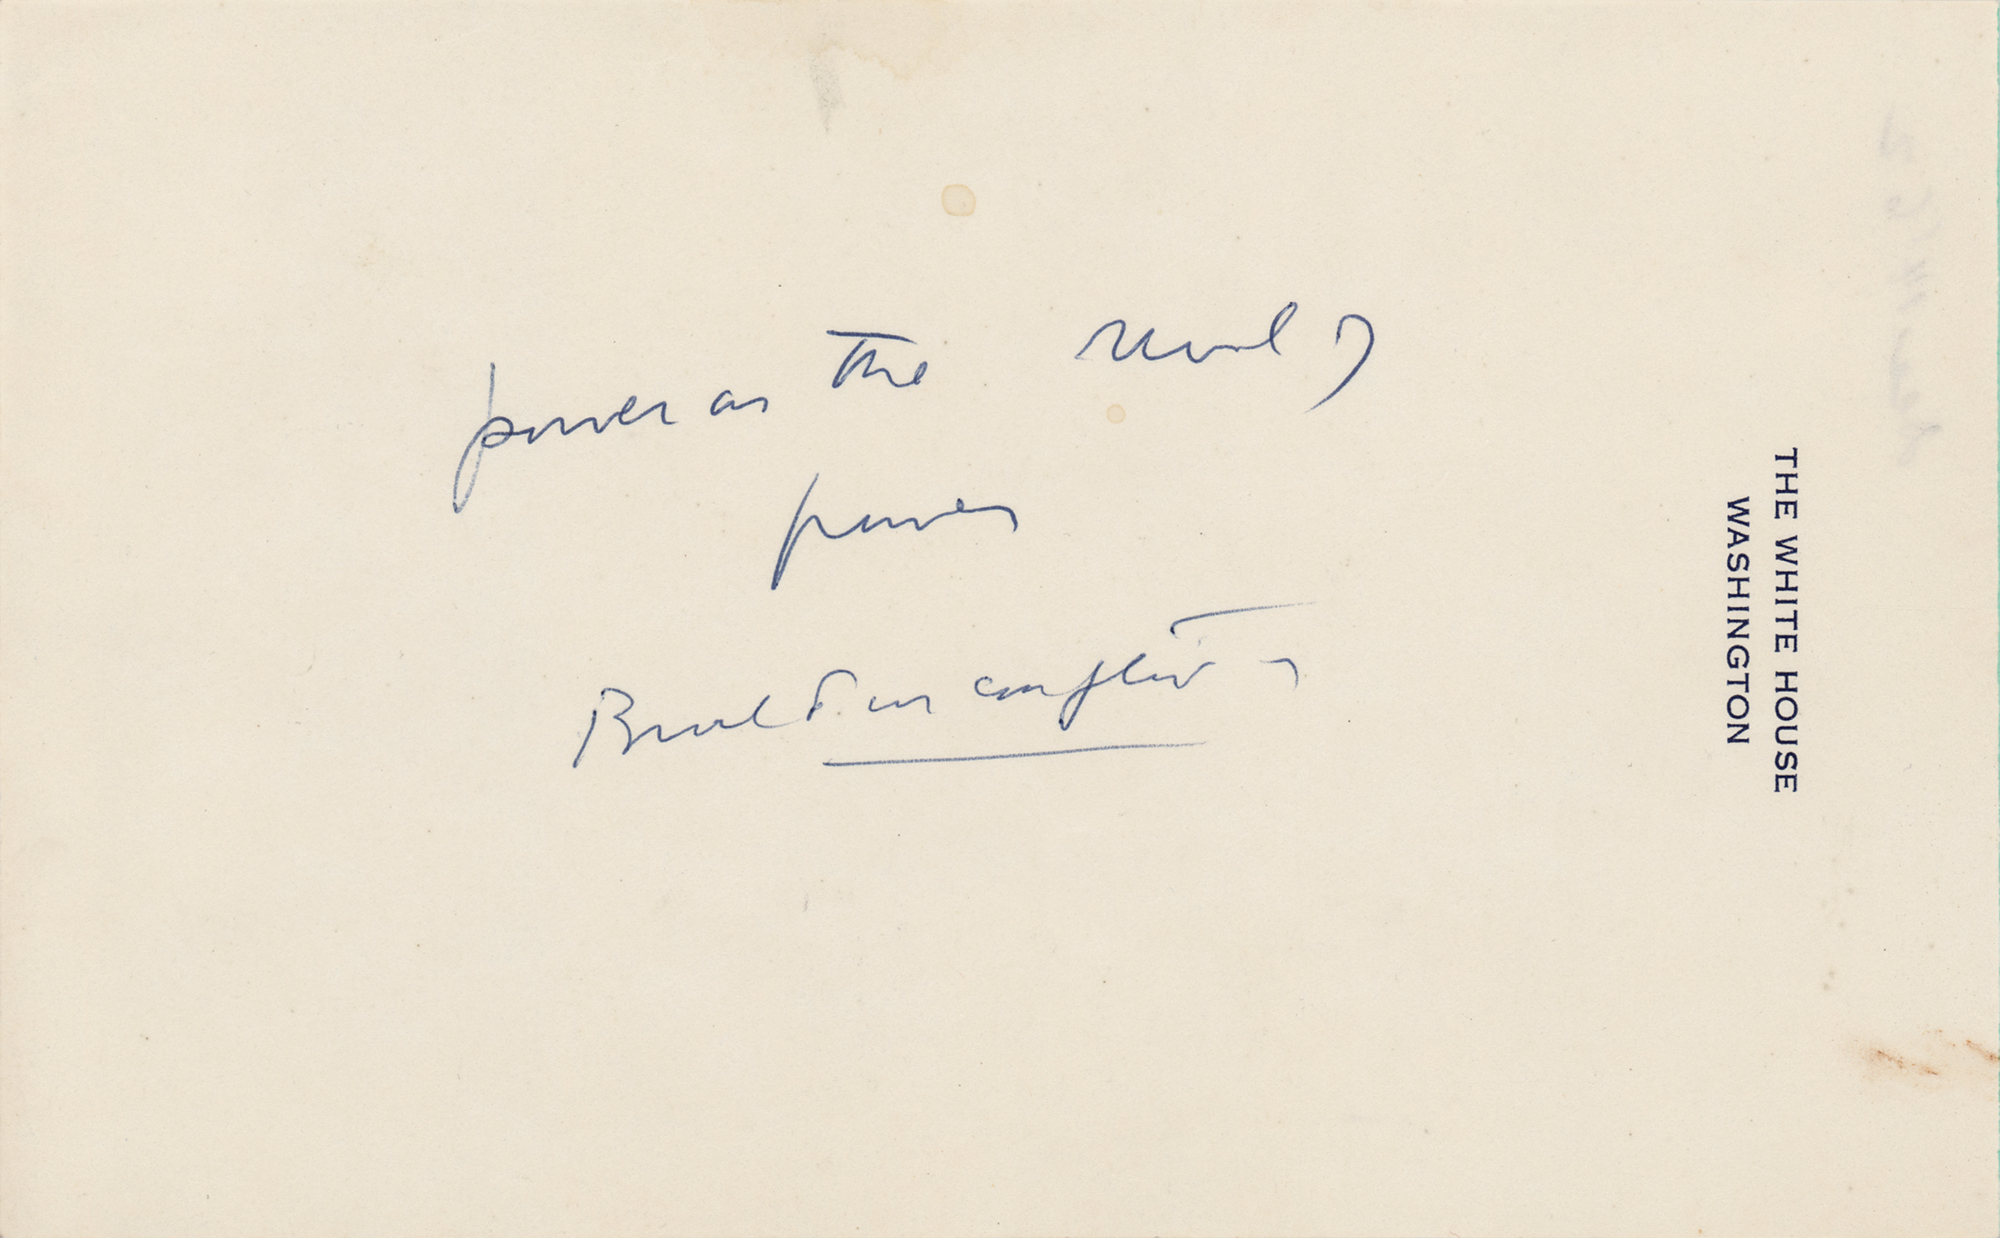 power as the rival of
power
Built in conflict
THE WHITE HOUSE
WASHINGTON